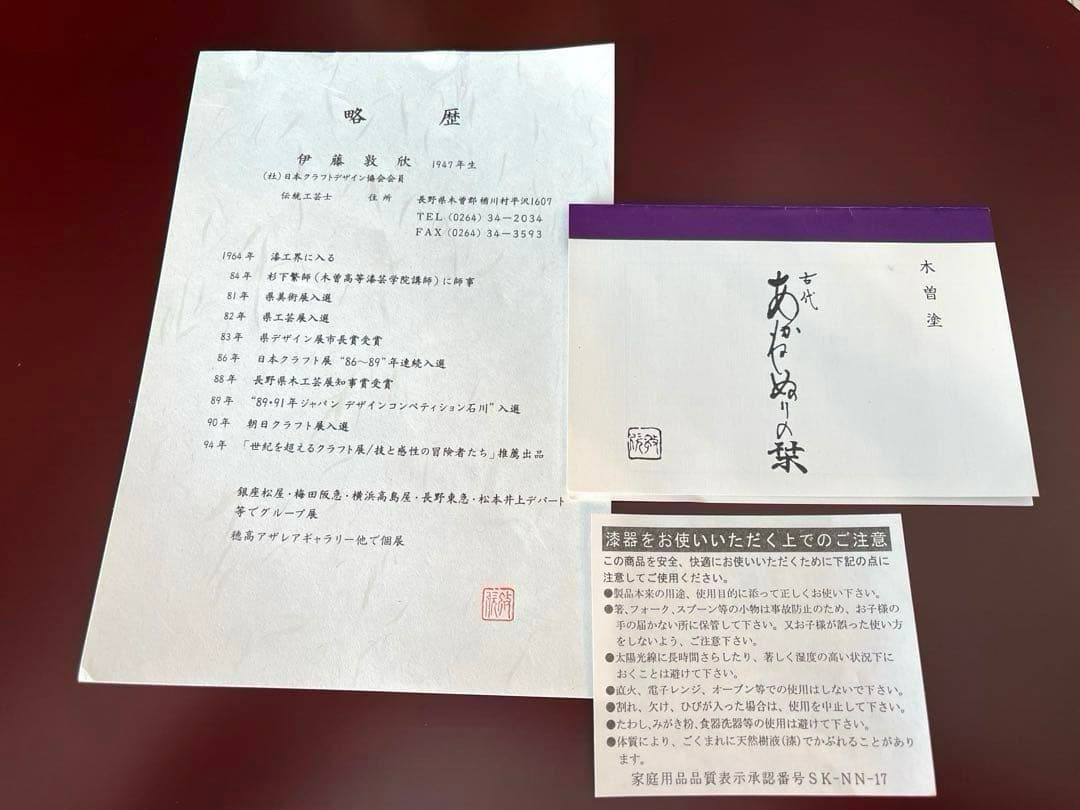 略歴
伊藤敦欣 1947年生
(社)日本クラフトデザイン協会会員
伝統工芸士 住所 長野県木曽郡楢川村平沢1607
TEL (0264) 34-2034
FAX (0264) 34-3593
1964年 漆工界に入る
84年 杉下繁師(木曽高等漆芸学院講師)に師事
81年 県美術展入選
82年 県工芸展入選
83年 県デザイン展市長賞受賞
86年 日本クラフト展 “86〜89”年連続入選
88年 長野県木工芸展知事賞受賞
89年 “89・91年ジャパン デザインコンペティション石川”入選
90年 朝日クラフト展入選
94年 「世紀を超えるクラフト展/技と感性の冒険者たち」推薦出品
銀座松屋・梅田阪急・横浜高島屋・長野東急・松本井上デパート
等でグループ展
穂高アザレアギャラリー他で個展
木曽塗
古代
あかねぬりの栞
漆器をお使いいただく上でのご注意
この商品を安全、快適にお使いいただくために下記の点に
注意してご使用ください。
●製品本来の用途、使用目的に添って正しくお使い下さい。
●箸、フォーク、スプーン等の小物は事故防止のため、お子様の
手の届かない所に保管して下さい。又お子様が誤った使い方
をしないよう、ご注意下さい。
●太陽光線に長時間さらしたり、著しく湿度の高い状況下に
おくことは避けて下さい。
●直火、電子レンジ、オーブン等での使用はしないで下さい。
●割れ、欠け、ひびが入った場合は、使用を中止して下さい。
●たわし、みがき粉、食器洗器等の使用は避けて下さい。
●体質により、ごくまれに天然樹液(漆)でかぶれることがあり
ます。
家庭用品品質表示承認番号SK-NN-17